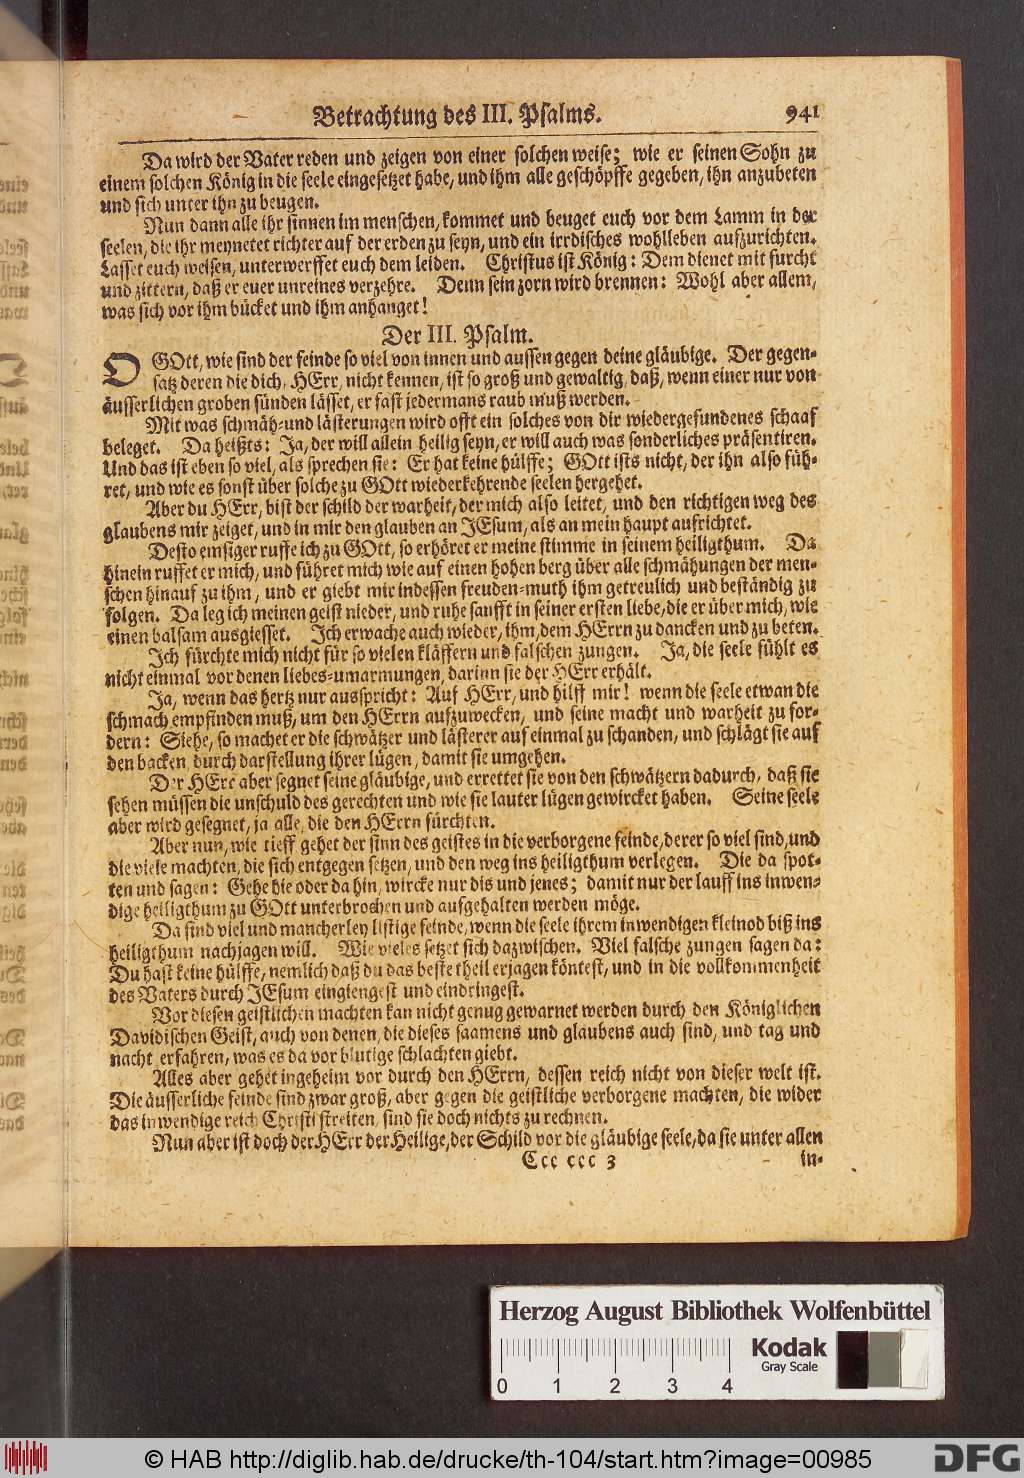 Betrachtung des III. Psalms. 941
Da wird der Vater reden und zeigen von einer solchen weise; wie er seinen Sohn zu
einem solchen König in die seele eingesetzet habe, und ihm alle geschöpffe gegeben, ihn anzubeten
und sich unter ihn zu beugen.
Nun dann alle ihr sinnen im menschen, kommet und beuget euch vor dem Lamm in der
seelen, die ihr meynetet richter auf der erden zu seyn, und ein irrdisches wohlleben aufzurichten.
Lasset euch weisen, unterwerffet euch dem leiden. Christus ist König: Dem dienet mit furcht
und zittern, daß er euer unreines verzehre. Denn sein zorn wird brennen: Wohl aber allem,
was sich vor ihm bücket und ihm anhanget!
Der III. Psalm.
O GOtt, wie sind der feinde so viel von innen und aussen gegen deine gläubige. Der gegen-
satz deren die dich, HErr, nicht kennen, ist so groß und gewaltig, daß, wenn einer nur von
äusserlichen groben sünden lässet, er fast jedermans raub muß werden.
Mit was schmäh-und lästerungen wird offt ein solches von dir wiedergefundenes schaaf
beleget. Da heißts: Ja, der will allein heilig seyn, er will auch was sonderliches präsentiren.
Und das ist eben so viel, als sprechen sie: Er hat keine hülffe; GOtt ists nicht, der ihn also füh-
ret, und wie es sonst über solche zu GOtt wiederkehrende seelen hergehet.
Aber du HErr, bist der schild der warheit, der mich also leitet, und den richtigen weg des
glaubens mir zeiget, und in mir den glauben an JEsum, als an mein haupt aufrichtet.
Desto emsiger ruffe ich zu GOtt, so erhöret er meine stimme in seinem heiligthum. Da
hinein ruffet er mich, und führet mich wie auf einen hohen berg über alle schmähungen der men-
schen hinauf zu ihm, und er giebt mir indessen freuden-muth ihm getreulich und beständig zu
folgen. Da leg ich meinen geist nieder, und ruhe saufft in seiner ersten liebe, die er über mich, wie
einen balsam ausgiesset. Ich erwache auch wieder, ihm, dem HErrn zu dancken und zu beten.
Ich fürchte mich nicht für so vielen kläffern und falschen zungen. Ja, die seele fühlt es
nicht einmal vor denen liebes-umarmungen, darinn sie der HErr erhält.
Ja, wenn das hertz nur ausspricht: Auf HErr, und hilff mir! wenn die seele etwan die
schmach empfinden muß, um den HErrn aufzuwecken, und seine macht und warheit zu for-
dern: Siehe, so machet er die schwätzer und lästerer auf einmal zu schanden, und schlägt sie auf
den backen, durch darstellung ihrer lügen, damit sie umgehen.
Der HErr aber segnet seine gläubige, und errettet sie von den schwätzern dadurch, daß sie
sehen müssen die unschuld des gerechten und wie sie lauter lügen gewircket haben. Seine seele
aber wird gesegnet, ja alle, die den HErrn fürchten.
Aber nun, wie tieff gehet der sinn des geistes in die verborgene feinde, derer so viel sind, und
die viele machten, die sich entgegen setzen, und den weg ins heiligthum verlegen. Die da spot-
ten und sagen: Gehe die oder da hin, wircke nur dis und jenes; damit nur der lauff ins inwen-
dige heiligthum zu GOtt unterbrochen und aufgehalten werden möge.
Da sind viel und mancherley listige feinde, wenn die seele ihrem inwendigen kleinod biß ins
heiligthum nachjagen will. Wie vieles setzet sich dazwischen. Viel falsche zungen sagen da:
Du hast keine hülffe, nemlich daß du das beste theil erjagen köntest, und in die vollkommenheit
des Vaters durch JEsum eingiengest und eindringest.
Vor diesen geistlichen machten kan nicht genug gewarnet werden durch den Königlichen
Davidischen Geist, auch von denen, die dieses saamens und glaubens auch sind, und tag und
nacht erfahren, was es da vor blutige schlachten giebt.
Alles aber gehet ingeheim vor durch den HErrn, dessen reich nicht von dieser welt ist.
Die äusserliche feinde sind zwar groß, aber gegen die geistliche verborgene machten, die wider
das inwendige reich Christi streiten, sind sie doch nichts zu rechnen.
Nun aber ist doch der HErr der Heilige, der Schild vor die gläubige seele, da sie unter allen
Ccc ccc 3 in-
Herzog August Bibliothek Wolfenbüttel
Kodak
Gray Scale
0 1 2 3 4
© HAB http://diglib.hab.de/drucke/th-104/start.htm?image=00985
DFG